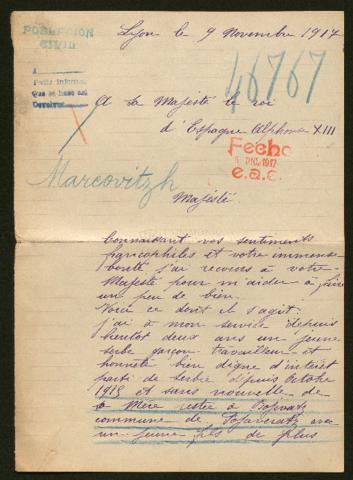 POBLACION
CIVIL
Lyon le 9 Novembre 1917
46767
Pedir informe.
Que se hace así
A Sa Majesté le roi
d'Espagne Alphonse XIII
Fecho
DIC. 1917
e.a.c.
Marcovitzh
Majesté
Connaissant vos sentiments
francophiles et votre immense
bonté j'ai recours à votre
Majesté pour m'aider à faire
un peu de bien.
Voici ce dont il s'agit.
j'ai à mon service depuis
bientot deux ans un jeune
serbe garçon travailleur et
honnête bien digne d'intéret
parti de Serbie depuis Octobre
1915 et sans nouvelle de
sa Mère restée à
commune de Pojaveratz avec
un jeune fils de plus